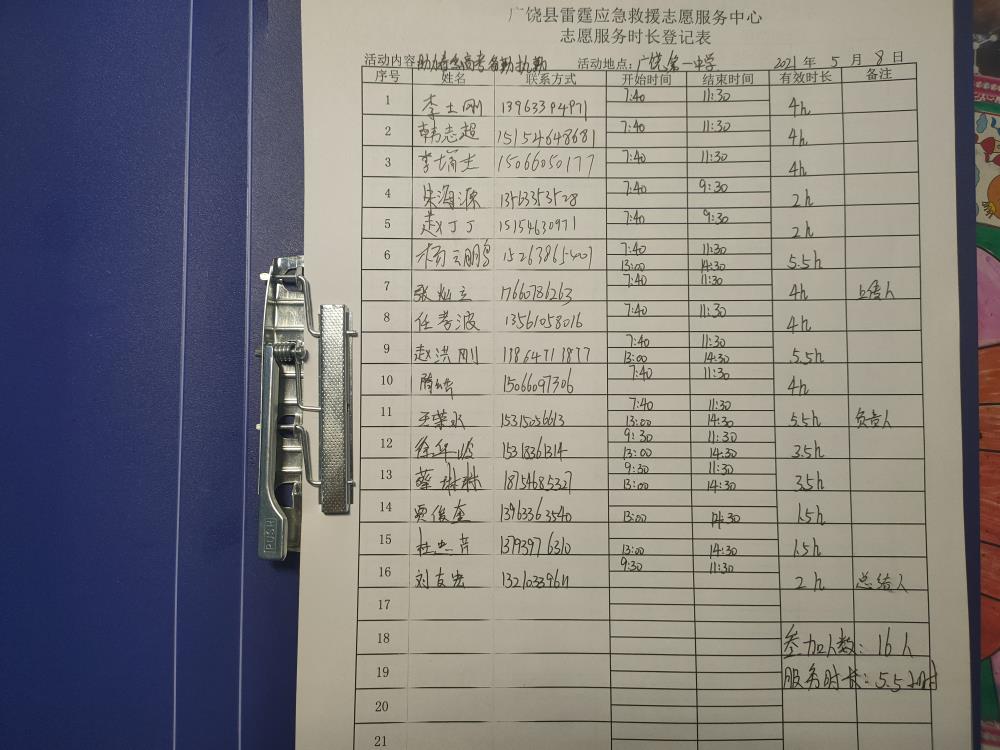 广饶县雷霆应急救援志愿服务中心
志愿服务时长登记表
活动内容 助力春季高考备勤执勤 活动地点：广饶第一中学 2021年5月8日
序号 姓名 联系方式 开始时间 结束时间 有效时长 备注
1 李士刚 13963394971 7:40 11:30 4h
2 韩志超 15154648681 7:40 11:30 4h
3 李 15066050177 7:40 11:30 4h
4 朱海源 13563353528 7:40 9:30 2h
5 赵丁丁 15154630971 7:40 9:30 2h
6 杨云鹏 15263865407 7:40 11:30 5.5h
13:00 14:30
7 张 立 17660786263 7:40 11:30 4h
8 任孝波 13561058016 7:40 11:30 4h
9 赵洪刚 7:40 11:30 5.5h
13:00 14:30
10 15066097306 7:40 11:30 4h
11 王荣水 15315056613 7:40 11:30 5.5h 负责人
13:00 14:30
12 徐 15318361314 9:30 11:30 3.5h
13:00 14:30
13 蔡琳琳 18754685327 9:30 11:30 3.5h
13:00 14:30
14 贾俊奎 13963363540 13:00 14:30 1.5h
15 杜 13793976310 13:00 14:30 1.5h
16 刘友宏 9:30 11:30 2h 总结人
17
18 参加人数：16人
19 服务时长：5.5小时
20
21
PUSH